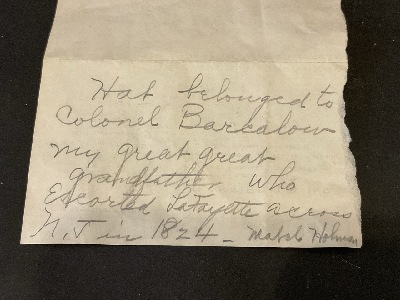 Hat belonged to
Colonel Barkalow
my great great
grandfather who
Escorted LaFayette across
N.J in 1824 - Mabel Holman